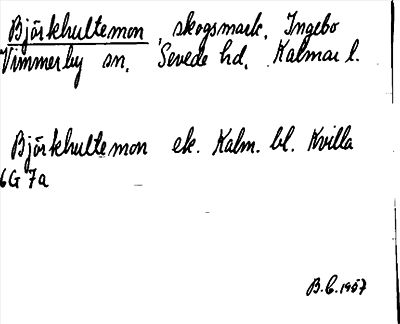 Björkhultemon, skogsmark, Ingebo
Vimmerby sn, Sevede hd, Kalmar l.
Björkhultemon ek. Kalm. bl. Kvilla
6G 7a
B.C. 1957